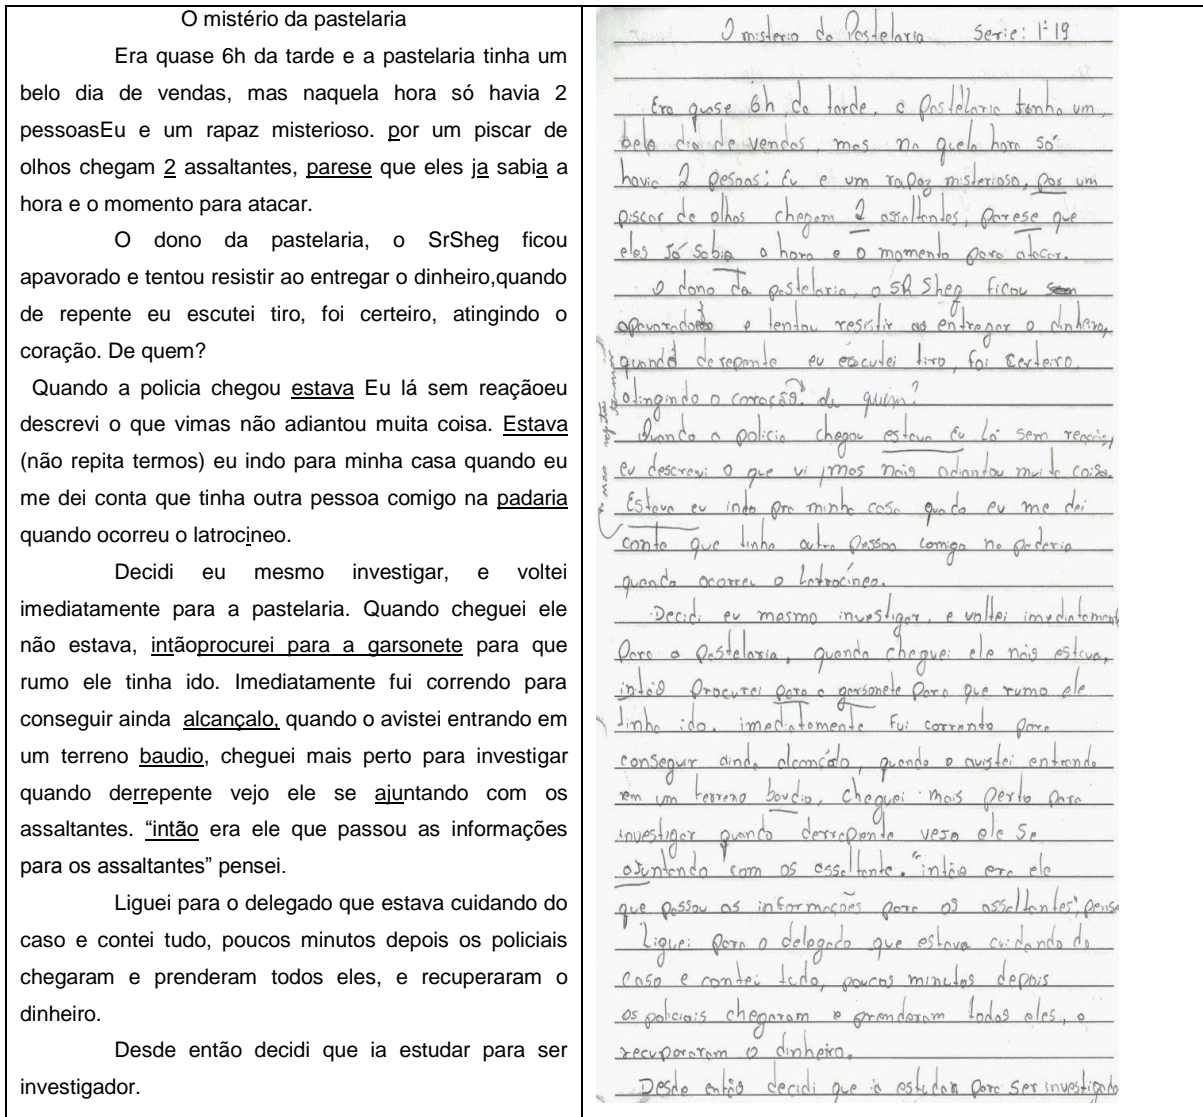 O mistério da pastelaria
Era quase 6h da tarde e a pastelaria tinha um
belo dia de vendas, mas naquela hora só havia 2
pessoasEu e um rapaz misterioso. por um piscar de
olhos chegam 2 assaltantes, parese que eles ja sabia a
hora e o momento para atacar.
O dono da pastelaria, o SrSheg ficou
apavorado e tentou resistir ao entregar o dinheiro,quando
de repente eu escutei tiro, foi certeiro, atingindo o
coração. De quem?
Quando a policia chegou estava Eu lá sem reaçãoeu
descrevi o que vimas não adiantou muita coisa. Estava
(não repita termos) eu indo para minha casa quando eu
me dei conta que tinha outra pessoa comigo na padaria
quando ocorreu o latrocíneo.
Decidi eu mesmo investigar, e voltei
imediatamente para a pastelaria. Quando cheguei ele
não estava, intãoprocurei para a garsonete para que
rumo ele tinha ido. Imediatamente fui correndo para
conseguir ainda alcançalo, quando o avistei entrando em
um terreno baudio, cheguei mais perto para investigar
quando derrepente vejo ele se ajuntando com os
assaltantes. “intão era ele que passou as informações
para os assaltantes” pensei.
Liguei para o delegado que estava cuidando do
caso e contei tudo, poucos minutos depois os policiais
chegaram e prenderam todos eles, e recuperaram o
dinheiro.
Desde então decidi que ia estudar para ser
investigador.
O misterio da Pastelaria Serie: 1º19
Era quase 6h da tarde. a Pastellaria tanha um
belo dia de vendas, mas na quela hora só
havia 2 pesoas: Eu e um rapaz misterioso, por um
piscar de olhos chegam 2 assaltantes, parese que
eles já sabia a hora e o momento para atacar.
O dono da pastelaria, o SR Sheg ficou
apavorado e tentou resistir ao entregar o dinheiro,
quando derepente eu escutei tiro, foi certeiro,
atingindo o coração. de quem?
Quando a policia chegou estava Eu lá sem reação,
eu descrevi o que vi, mas não adiantou muita coisa.
não repita termos
Estava eu indo pra minha casa quado eu me dei
conta que tinha outra pessoa comigo na padaria
quando ocorreu o latrocíneo.
Decidi eu mesmo investigar, e voltei imediatament
para a pastelaria, quando cheguei ele não estava,
intão procurei para a garsonete para que rumo ele
tinha ido. imediatamente fui correndo para
conseguir ainda alcançálo, quando o avistei entrando
em um terreno baudio, cheguei mais perto para
investigar quando derrepente vejo ele se
ajuntando com os assaltante. “intão era ele
que passou as informações para os assaltantes”, pense
Liguei para o delegado que estava cuidando do
caso e contei tudo, poucos minutos depois
os policiais chegaram e prenderam todos eles, e
recuperaram o dinheiro.
Desde então decidi que ia estudar para ser investigado